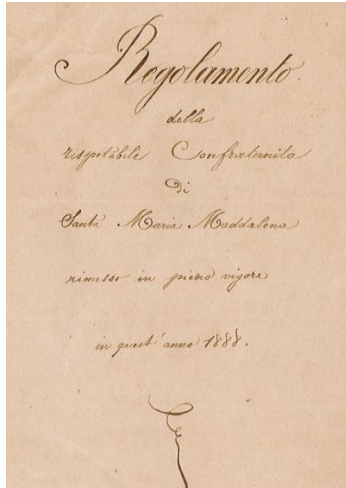 Regolamento.
della
rispetabile Confraternita
Di
Santa Maria Maddalena
rimesso in pieno vigore
in quest' anno 1888.